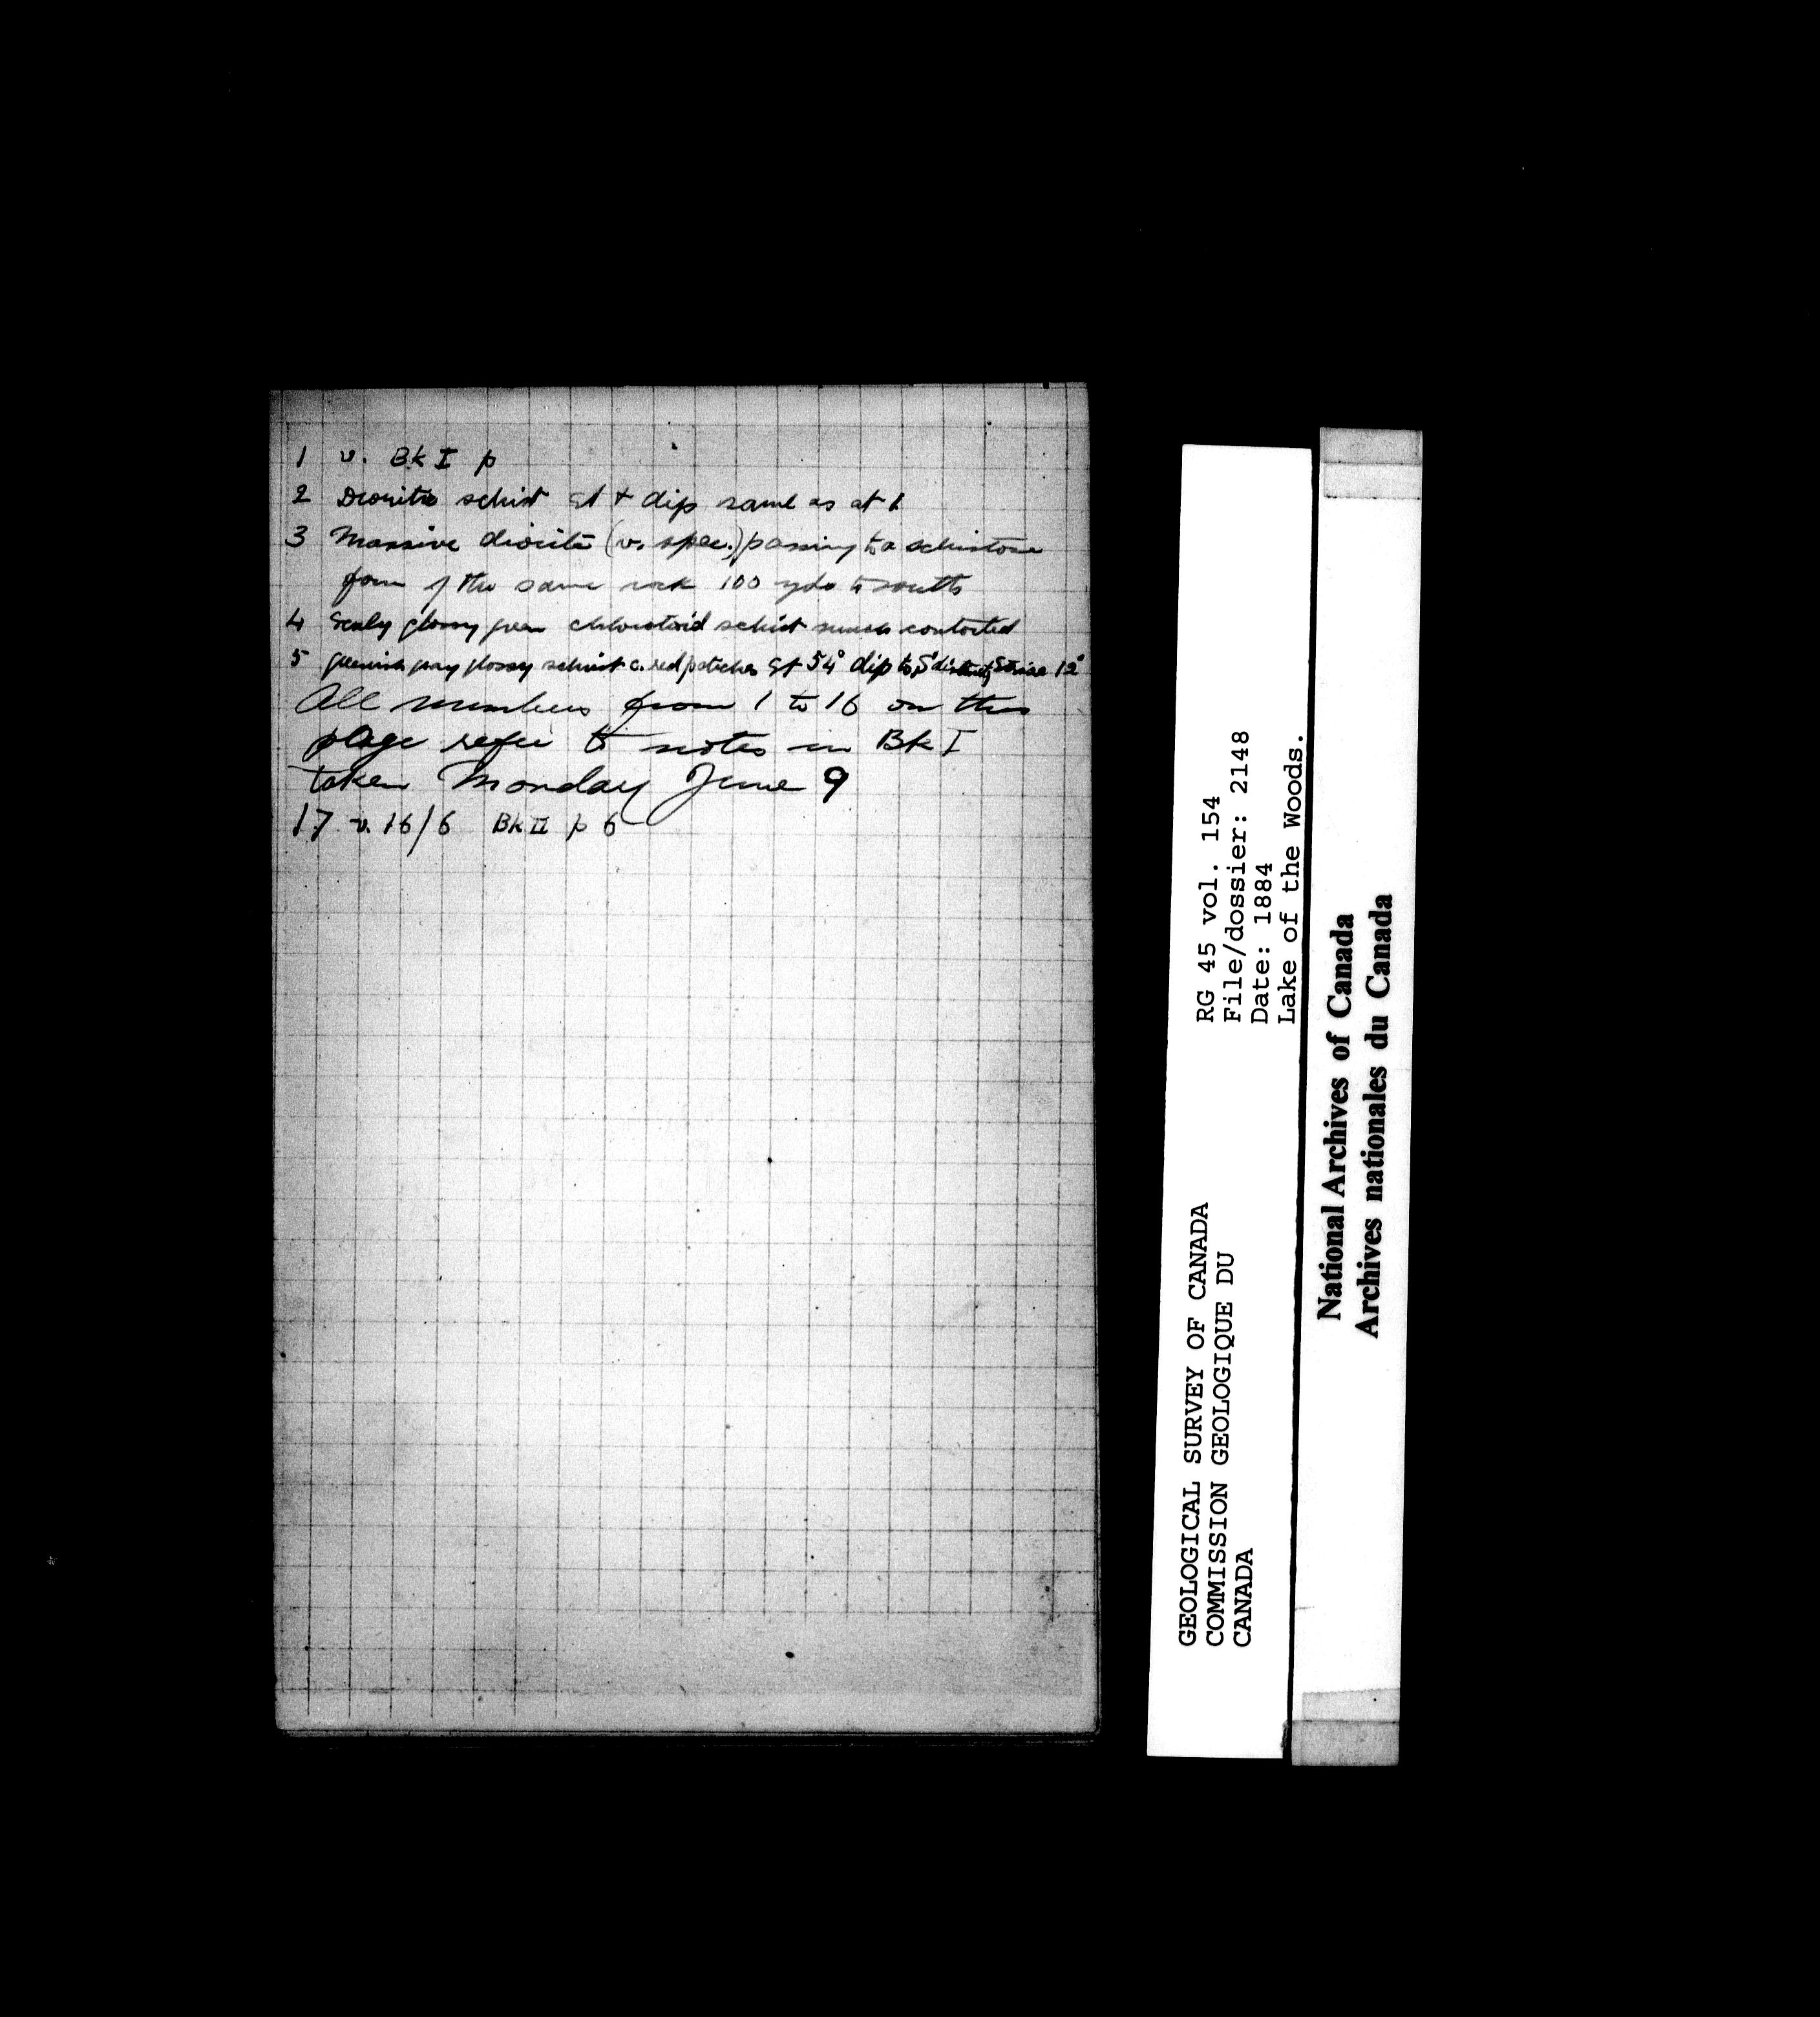 1 v. Bk I p
2 Diorite schist st + dip same as at 1
3 Massive diorite (v. spec.) passing to a schistose
form of the same rock 100 yds to south
4 Scaly glossy green chloritoid schist much contorted
5 greenish gray glossy schist c. red patches st 54° dip to S distinct Striae 12°
All numbers from 1 to 16 on this
page refer to notes in Bk I
taken Monday June 9
17 v. 16/6 Bk II p 6
RG 45 vol. 154
File/dossier: 2148
Date: 1884
Lake of the Woods.
GEOLOGICAL SURVEY OF CANADA
COMMISSION GEOLOGIQUE DU
CANADA
National Archives of Canada
Archives nationales du Canada